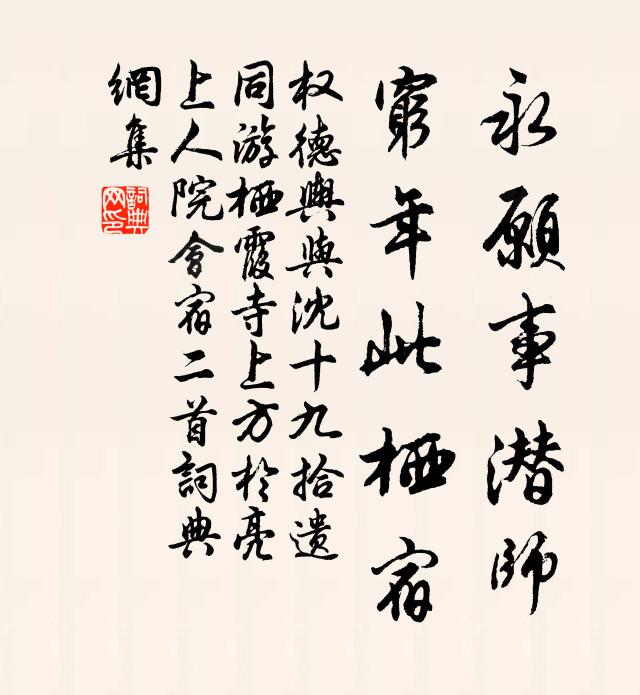 永愿事潜師
窮年此栖宿
权德輿與沈十九拾遗
同游栖霞寺上方於亮
上人院會宿二首詞典
網集
詞典
网印